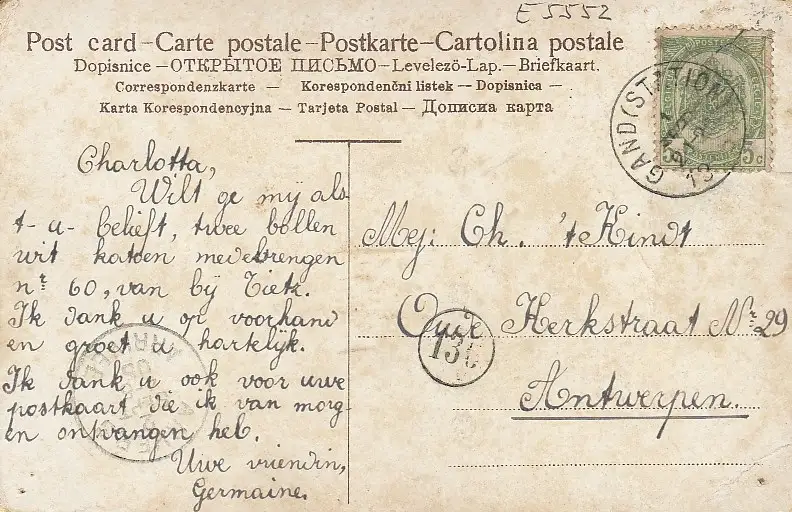 E5552
Post card – Carte postale – Postkarte – Cartolina postale
Dopisnice – ОТКРЫТОЕ ПИСЬМО – Levelezö-Lap. – Briefkaart.
Correspondenzkarte – Korespondenčni listek – Dopisnica –
Karta Korespondencyjna – Tarjeta Postal – Дописна карта
GAND (STATION)
5c
Charlotta,
Wilt ge mÿ als-
t-u-belieft, twee bollen
wit katoen medebrengen
nr 60, van bÿ Tietz.
Ik dank u op voorhand
en groet u hartelÿk.
Ik dank u ook voor uwe
postkaart die ik van morg-
en ontvangen heb.
Uwe vriendin,
Germaine.
Mej: Ch. 't Kindt
Oude Kerkstraat Nr 29
Antwerpen.